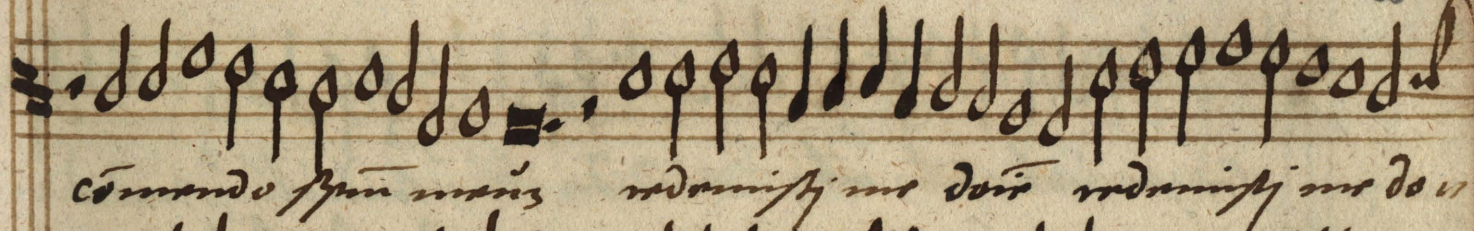 cōmendo spm̄ meuʒ redemisti me dōie redemisti me do